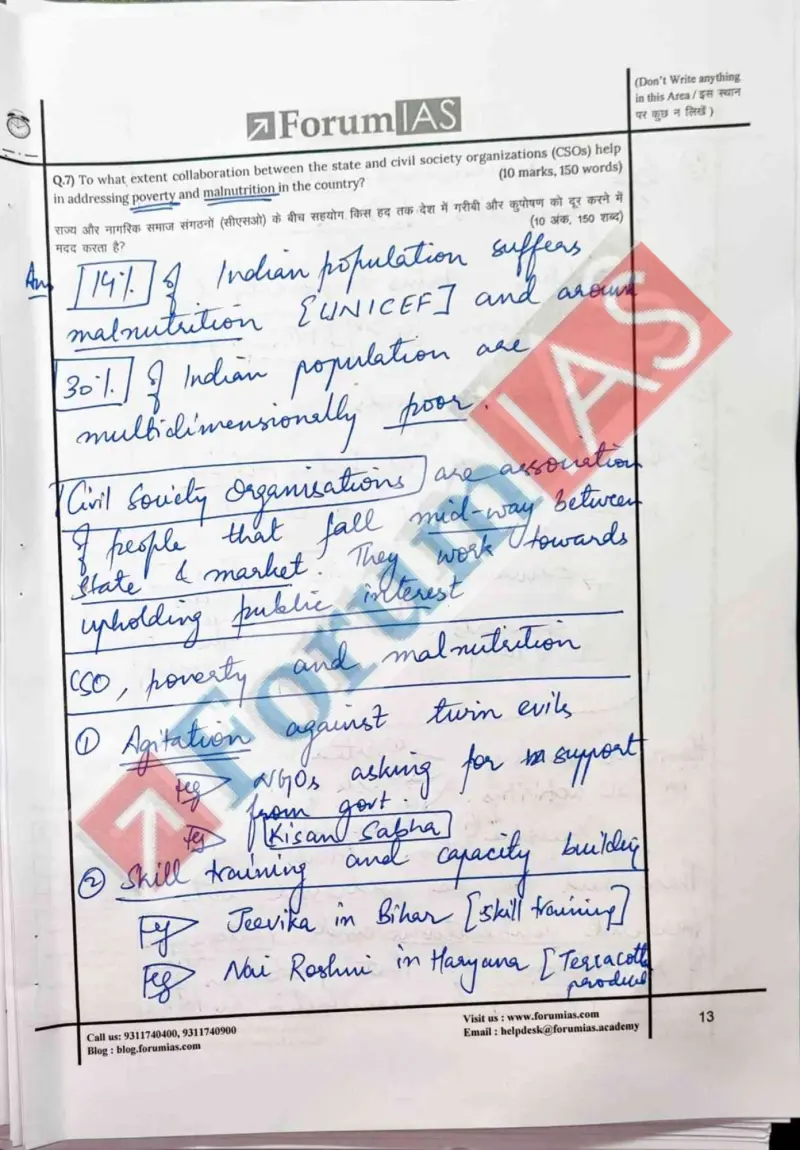 ForumIAS
(Don't Write anything
in this Area / इस स्थान
पर कुछ न लिखें )
Q.7) To what extent collaboration between the state and civil society organizations (CSOs) help
in addressing poverty and malnutrition in the country? (10 marks, 150 words)
राज्य और नागरिक समाज संगठनों (सीएसओ) के बीच सहयोग किस हद तक देश में गरीबी और कुपोषण को दूर करने में
मदद करता है? (10 अंक, 150 शब्द)
Ans 14% of Indian population suffers
malnutrition [UNICEF] and around
30% of Indian population are
multidimensionally poor.
Civil Society Organisations are association
of people that fall mid-way between
state & market. They work towards
upholding public interest
CSO, poverty and malnutrition
① Agitation against twin evils
eg NGOs asking for support
from govt.
eg Kisan Sabha
② Skill training and capacity building
eg Jeevika in Bihar [skill training]
eg Nai Roshni in Haryana [Terracotta
ForumIAS
Call us: 9311740400, 9311740900
Blog : blog.forumias.com
Visit us : www.forumias.com
Email : helpdesk@forumias.academy
13